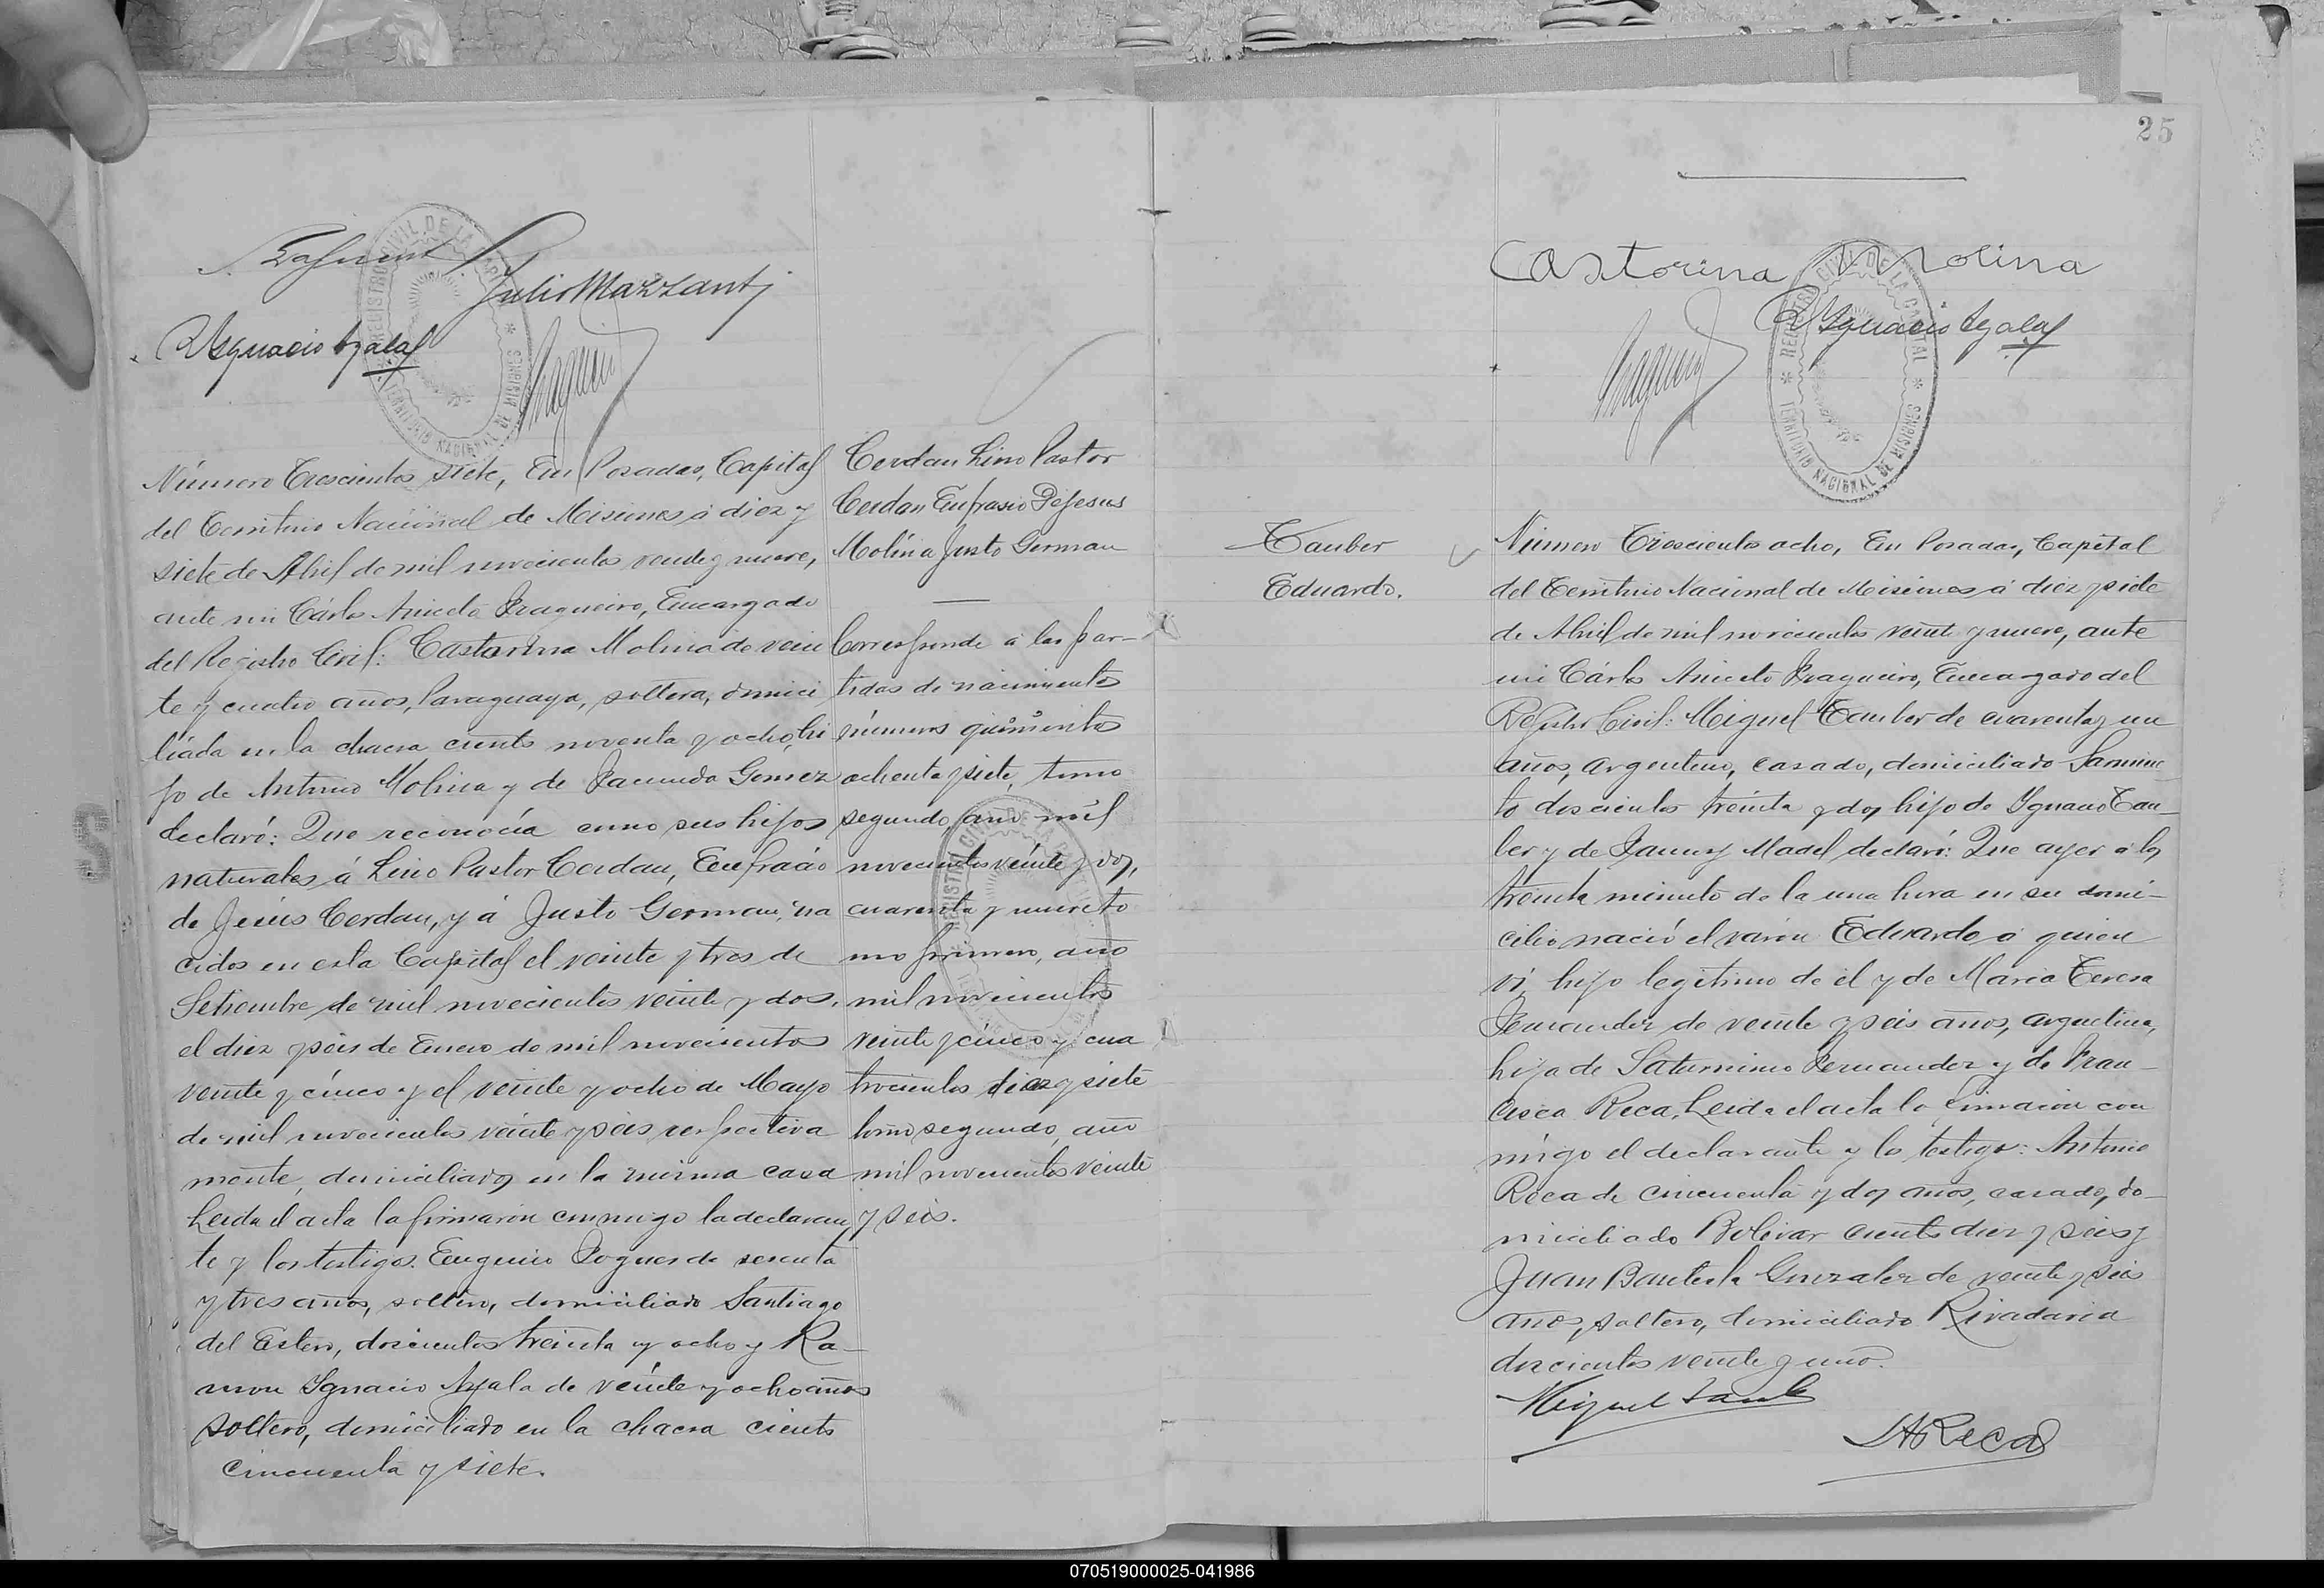 Julio Mazzanti
R Ignacio Ayala
Número Trescientos siete, En Posadas, Capital
del Territorio Nacional de Misiones á diez y
siete de Abril de mil novecientos veinte y nueve,
ante mi Cárlos Aniceto Fragueiro, Encargado
del Registro Civil: Castorina Molina de vein
te y cuatro años, Paraguaya, soltera, domici
liada en la chacra ciento noventa y ocho, hi
ja de Antonio Molina y de Facunda Gomez
declaró: Que reconocía como sus hijos
naturales á Lino Pastor Cerdan, Eufracio
de Jesús Cerdan, y á Justo German, na
cidos en esta Capital el veinte y tres de
Setiembre de mil novecientos veinte y dos,
el diez y seis de Enero de mil novecientos
veinte y cinco y el veinte y ocho de Mayo
de mil novecientos veinte y seis respectiva
mente, domiciliados en la misma casa
Leida el acta la firmaron conmigo la declaran
te y los testigos: Eugenio de sesenta
y tres años, soltero, domiciliado Santiago
del Estero, doscientos treinta y ocho y Ra-
mon Ignacio Ayala de veinte y ocho años
soltero, domiciliado en la chacra ciento
cincuenta y siete.
Cerdan Lino Pastor
Cerdan Eufrasio DeJesus
Molina Justo German
Corresponde á las par-
tidas de nacimiento
números quinientos
ochenta y siete, tomo
segundo, año mil
novecientos veinte y dos,
cuarenta y nueve to
mo primero, año
mil novecientos
veinte y cinco y cua
trocientos diez y siete
tomo segundo, año
mil novecientos veinte
y seis.
25
Castorina Molina
R Ignacio Ayala
REGISTRO CIVIL DE LA CAPITAL
TERRITORIO NACIONAL DE MISIONES
Tauber
Eduardo.
Número Trescientos ocho, En Posadas, Capital
del Territorio Nacional de Misiones á diez y siete
de Abril de mil novecientos veinte y nueve, ante
mi Cárlos Aniceto Fragueiro, Encargado del
Registro Civil: Miguel Tauber de cuarenta y un
años, argentino, casado, domiciliado Sarmien
to doscientos treinta y dos hijo de Ignacio Tau-
ber y de Fanny Madel declaró: Que ayer á los
treinta minutos de la una hora en su domi-
cilio nació el varón Eduardo á quien
ví, hijo legítimo de él y de Maria Teresa
Fernandez de veinte y seis años, argentina,
hija de Saturnino Fernandez y de Fran-
cisca Reca. Leida el acta la firmaron con
migo el declarante y los testigos: Antonio
Reca de cincuenta y dos años, casado, do-
miciliado Bolivar ciento diez y seis y
Juan Bautista Gonzalez de veinte y seis
años, soltero, domiciliado Rivadavia
doscientos veinte y uno.
Miguel Taub
A Reca
070519000025-041986